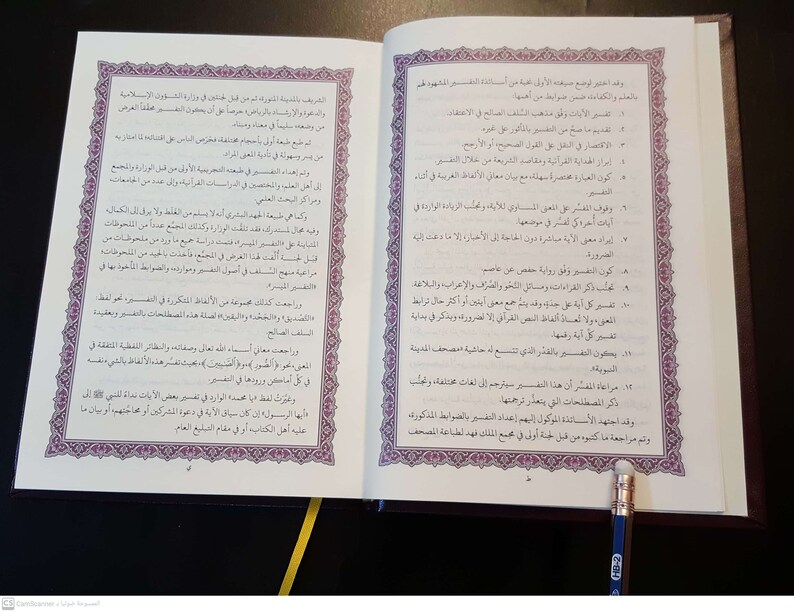 وقد اختير لوضع صيغته الأولى نخبة من أساتذة التفسير المشهود لهم
بالعلم والكفاءة، ضمن ضوابط من أهمها:
١. تفسير الآيات وَفْق مذهب السلف الصالح في الاعتقاد.
٢. تقديم ما صحَّ من التفسير بالمأثور على غيره.
٣. الاقتصار في النقل على القول الصحيح، أو الأرجح.
٤. إبراز الهداية القرآنية ومقاصد الشريعة من خلال التفسير.
٥. كون العبارة مختصرةً سهلة، مع بيان معاني الألفاظ الغريبة في أثناء
التفسير.
٦. وقوف المفسِّر على المعنى المساوي للآية، وتجنُّب الزيادة الواردة في
آيات أُخر؛ كي تُفسَّر في موضعها.
٧. إيراد معنى الآية مباشرة دون الحاجة إلى الأخبار، إلا ما دعت إليه
الضرورة.
٨. كون التفسير وَفْق رواية حفص عن عاصم.
٩. تجنُّب ذكر القراءات، ومسائل النَّحْو والصَّرْف والإعراب، والبلاغة.
١٠. تفسير كل آية على حِدَةٍ، وقد يتمُّ جمع معنى آيتين أو أكثر حال ترابط
المعنى، ولا تُعـادُ ألفاظ النص القرآني إلا لضرورة، ويذكر في بداية
تفسير كلِّ آية رقمها.
١١. يكون التفسير بالقَدْر الذي تتسع له حاشية «مصحف المدينة
النبوية».
١٢. مراعاة المفسِّر أن هذا التفسير سيترجم إلى لغات مختلفة، وتجنُّب
ذكر المصطلحات التي يتعذَّر ترجمتها.
وقد اجتهد الأساتذة الموكول إليهم إعداد التفسير بالضوابط المذكورة،
وتم مراجعة ما كتبوه من قبل لجنة أولى في مجمع الملك فهد لطباعة المصحف
ط
الشريف بالمدينة المنورة، ثم من قبل لجنتين في وزارة الشؤون الإسلامية
والدعوة والإرشاد بالرياض؛ حرصاً على أن يكون التفسير محقِّقاً الغرض
من وضعه، سليماً في معناه ومبناه.
ثم طبع طبعة أولى بأحجام مختلفة، فحَرَص الناس على اقتنائه؛ لما امتاز به
من يسر وسهولة في تأدية المعنى المراد.
وتم إهداء التفسير في طبعته التجريبية الأولى من قبل الوزارة والمجمع
إلى أهل العلم، والمختصين في الدراسات القرآنية، وإلى عدد من الجامعات،
ومراكز البحث العلمي.
وكما هي طبيعة الجهد البشري أنه لا يسلم من الغَلَط ولا يرقى إلى الكمال،
وفيه مجال لمستدرك، فقد تلقَّت الوزارة وكذلك المجمَّع عدداً من الملحوظات
المتباينة على «التفسير الميسر»، فتمت دراسة جميع ما ورد من ملحوظات من
قِبَل لجنة أُلِّفت لهذا الغرض في المجمَّع، فأخذت بالجيد من الملحوظات؛
مراعية منهج السَّلف في أصول التفسير وموارده، والضوابط المأخوذ بها في
«التفسير الميسر».
وراجعت كذلك مجموعة من الألفاظ المتكررة في التفسير، نحو لفظ:
«التَّصْديق» و«الجَحْد» و«اليقين»؛ لصلة هذه المصطلحات بالتفسير وبعقيدة
السلف الصالح.
وراجعت معاني أسماء الله تعالى وصفاته، والنظائر اللفظية المتفقة في
المعنى، نحو: ﴿ٱلصُّورِ﴾، و﴿ٱلصَّٰبِـِٔينَ﴾، بحيث تفسَّر هذه الألفاظ بالشيء نفسه
في كلِّ أماكن ورودها في التفسير.
وغيَّرَتْ لفظ «يا محمد» الوارد في تفسير بعض الآيات نداءً للنبي ﷺ إلى
«أيها الرسول» إن كان سياق الآية في دعوة المشركين أو محاجَّتهم، أو بيان ما
عليه أهل الكتاب، أو في مقام التبليغ العام.
ي
HB-2
CS CamScanner الممسوحة ضوئيا بـ